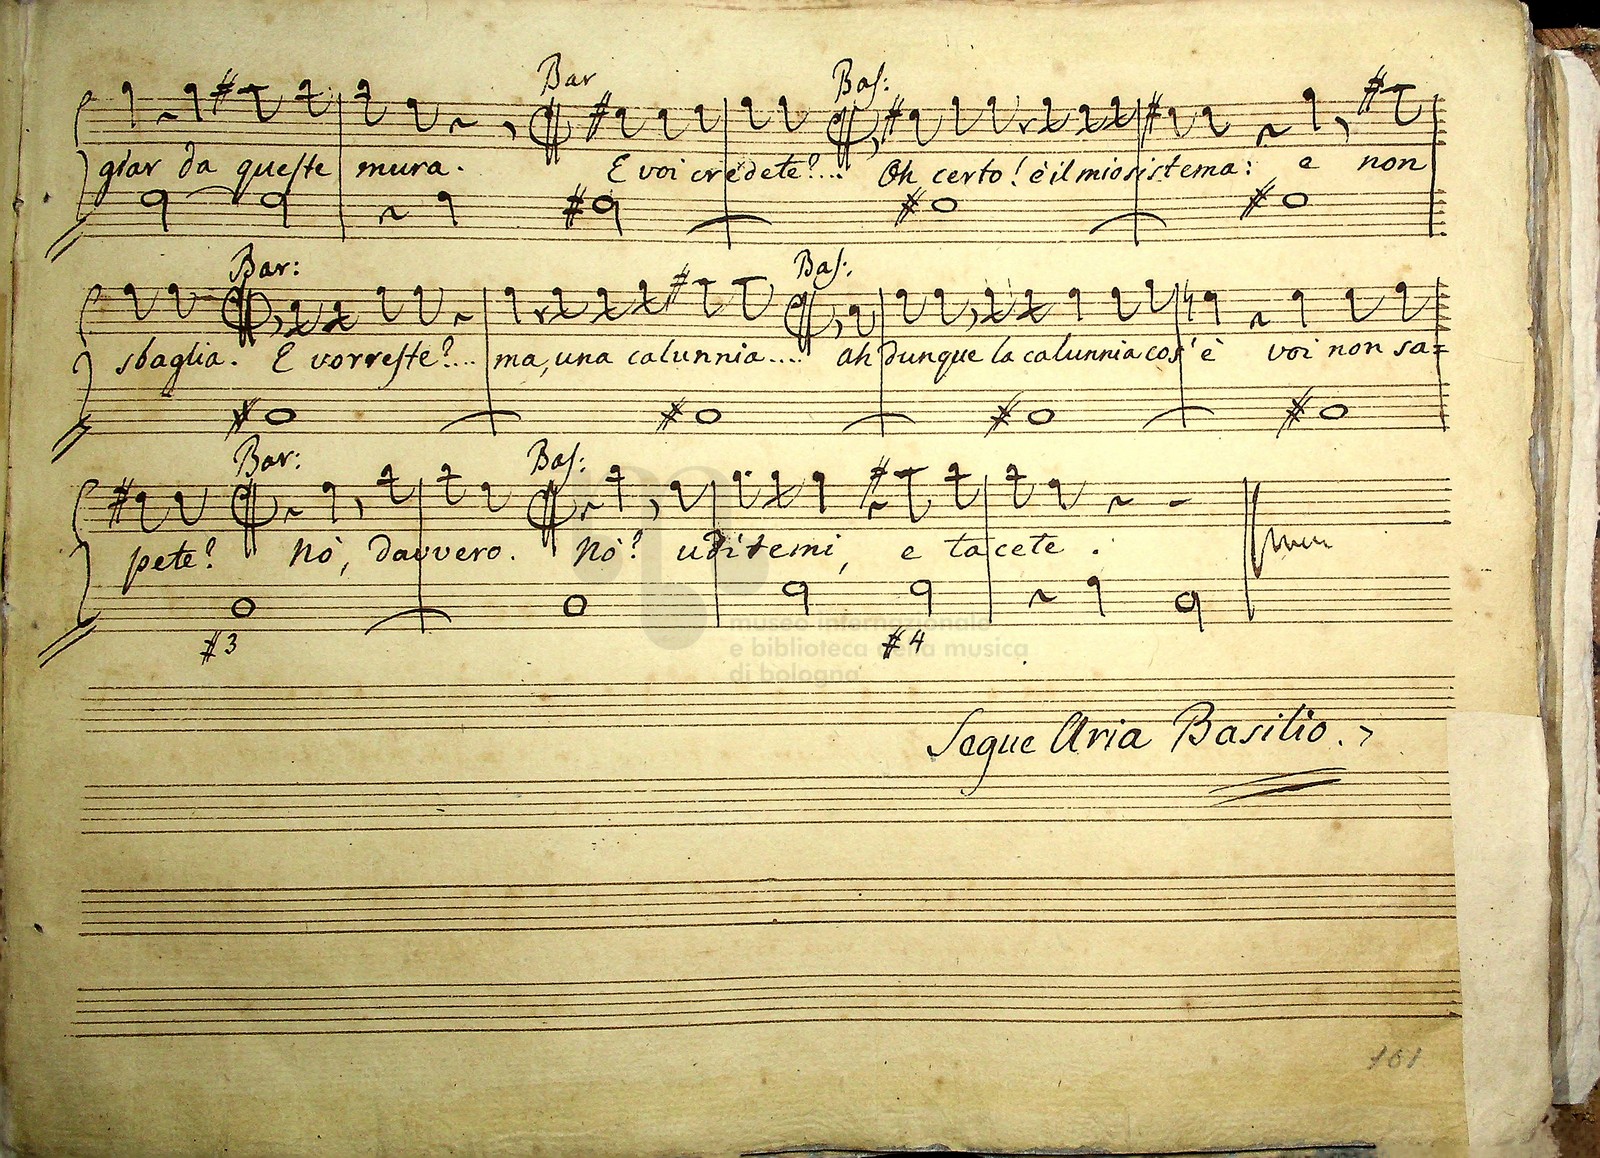 Bar Bas:
giar da queste mura. E voi credete?... Oh certo! è il mio sistema: e non
Bar: Bas:
sbaglia. E vorreste?... ma, una calunnia.... ah dunque la calunnia cos'è voi non sa=
Bar: Bas:
pete? Nò, davvero. Nò? uditemi, e tacete.
#3 #4
museo internazionale
e biblioteca della musica
di bologna
Segue Aria Basilio.
161